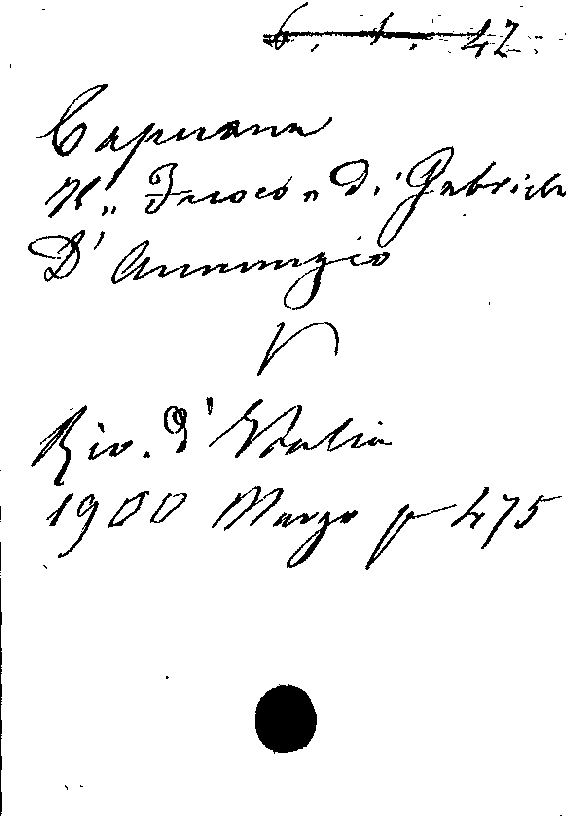 6. 1. 42
Capuana
Il „Fuoco„ di Gabriele
D'Annunzio
V
Riv. d'Italia
1900 Marzo p 475